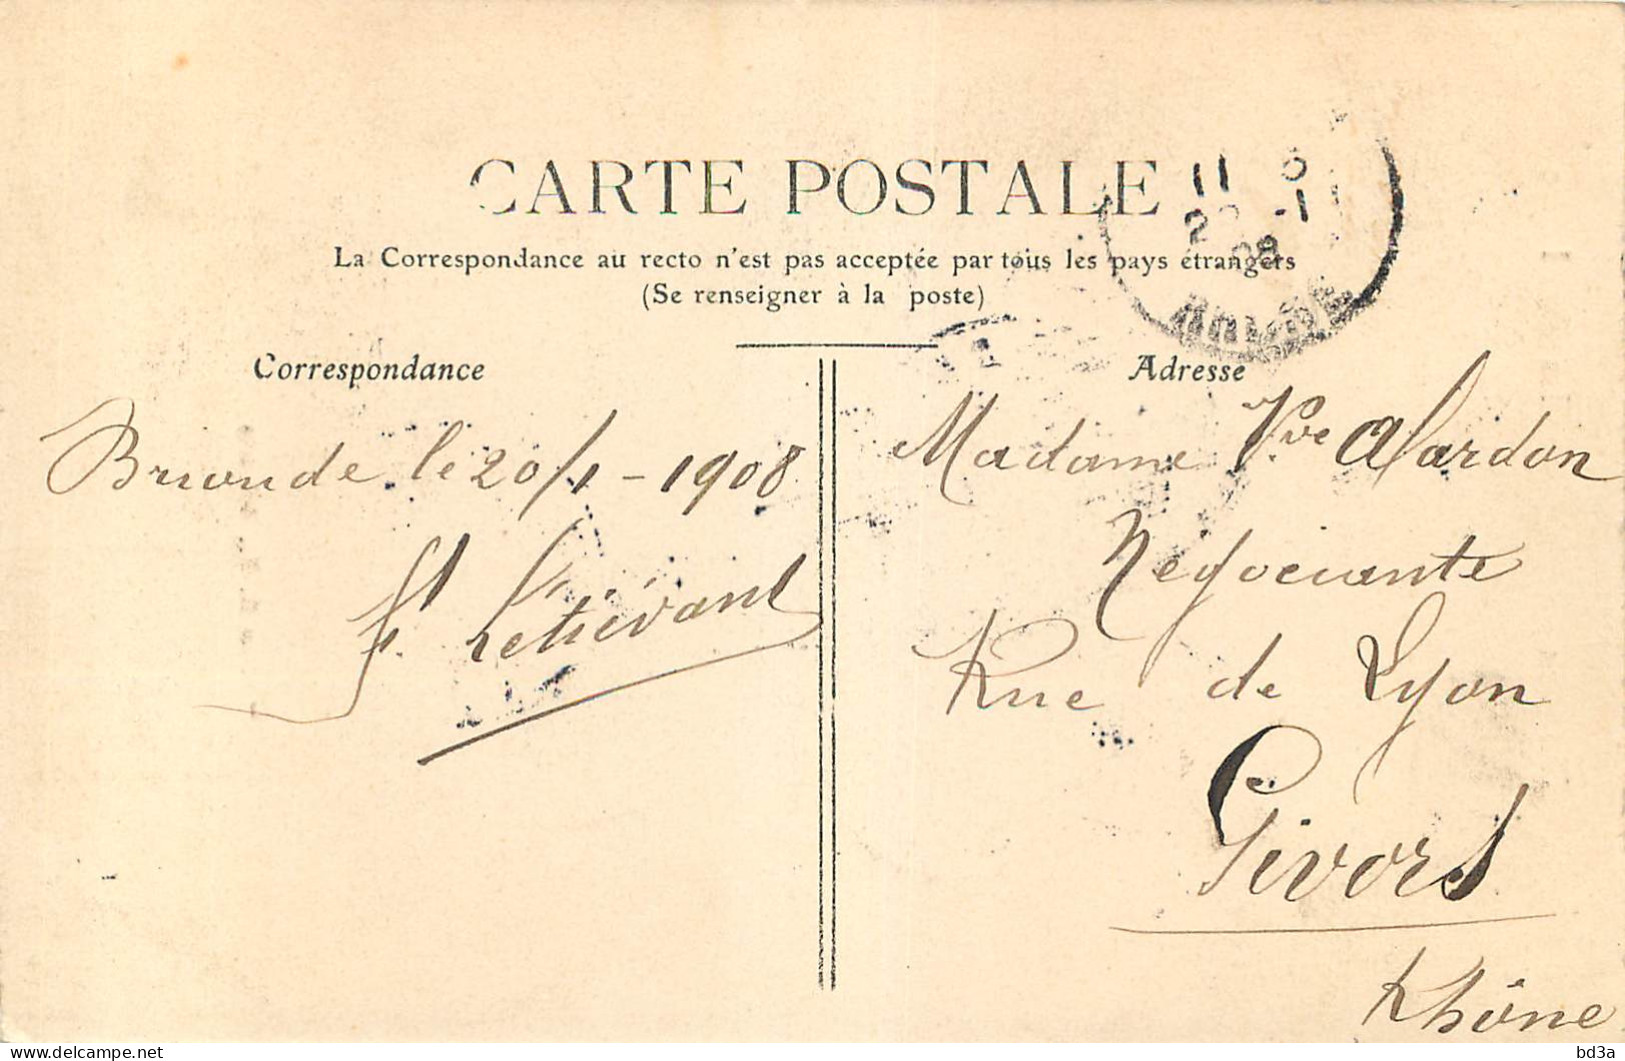 CARTE POSTALE
La Correspondance au recto n'est pas acceptée par tous les pays étrangers
(Se renseigner à la poste)
Correspondance
Brioude le 20/1 - 1908
Letiévant
Adresse
Madame Vve Alardon
Negociante
Rue de Lyon
Givors
Rhône
11
-1
08
BRIOUDE
delcampe.net
bd3a